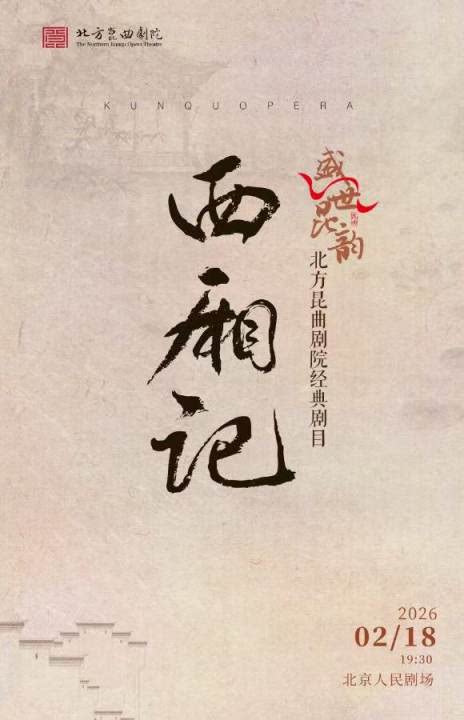 北方昆曲剧院
The Northern Kunqu Opera Theatre
KUNQUOPERA
西厢记
盛世昆韵
北方昆曲剧院经典剧目
2026
02/18
19:30
北京人民剧场